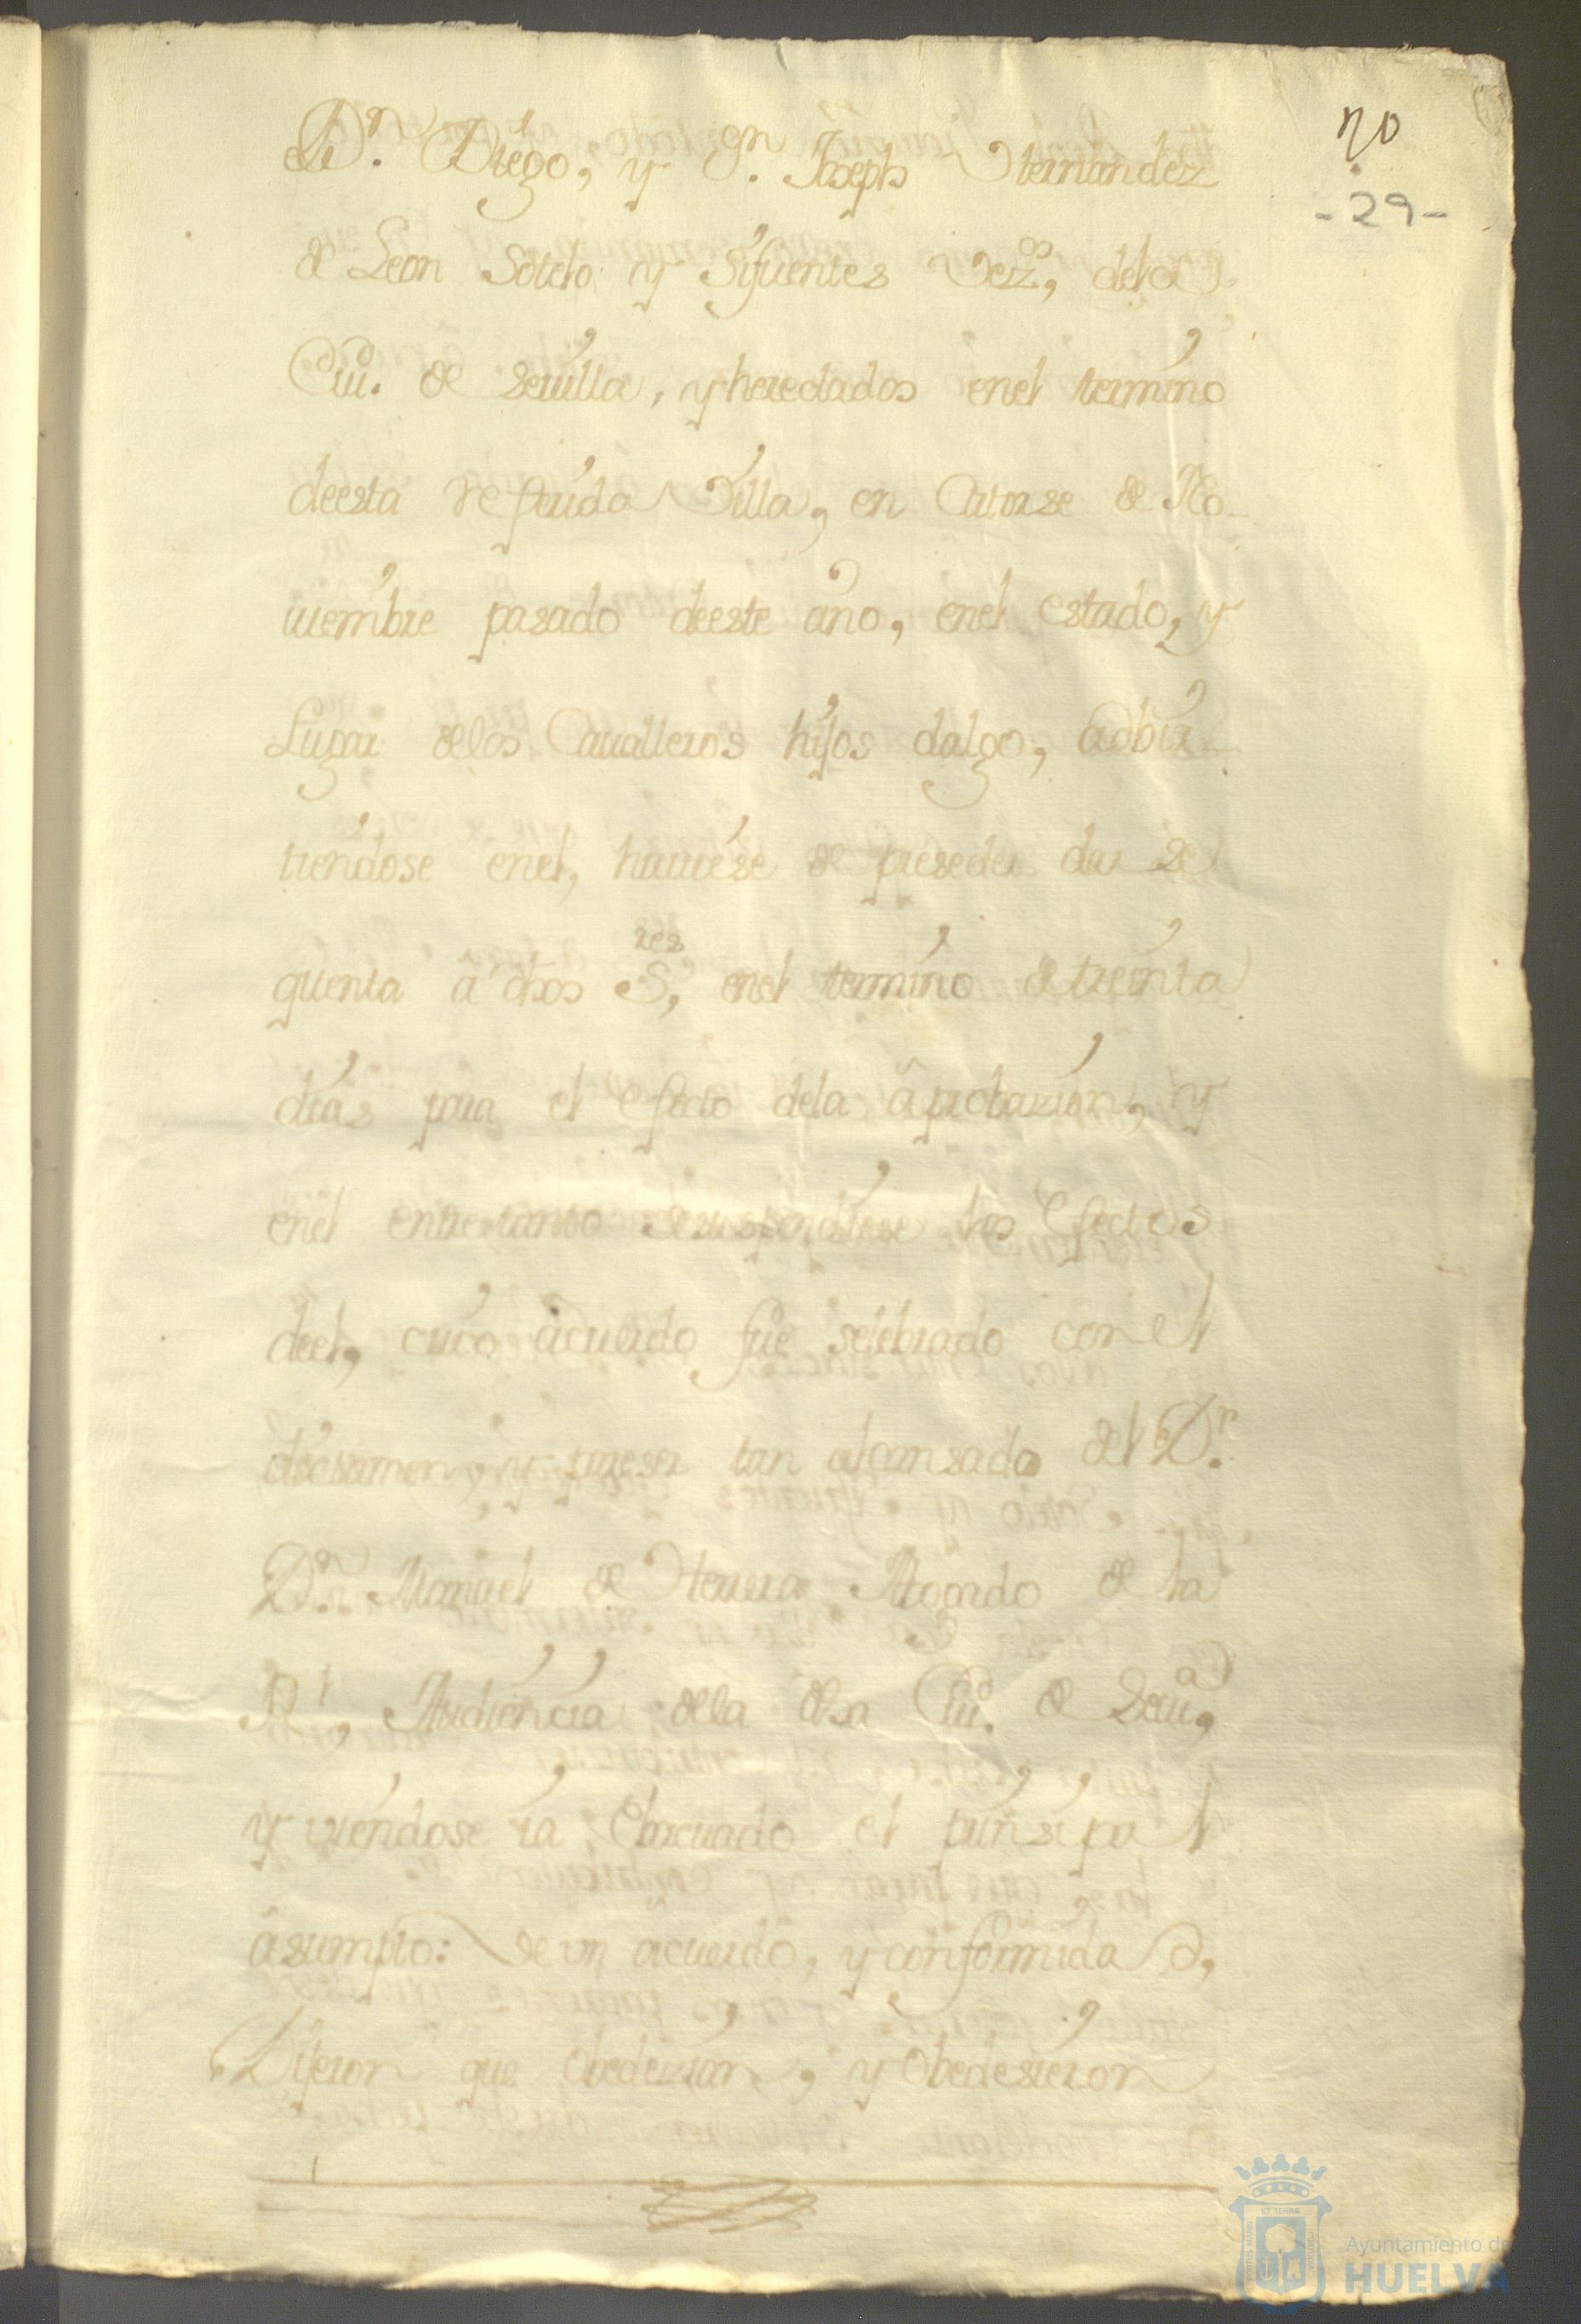 no
- 29 -
Dn. Diego, y Dn. Joseph Hernandez
de Leon Sotelo y Sifuentes Vezos, dela
Ciud. de Sevilla, y heredados enel termino
deesta referida Villa, en Catorse de No-
viembre pasado deeste año, enel estado, y
Lugar delos Cavalleros hijos dalgo, adbir-
tiendose enel, haverse de preseder dar se
quenta â dhos Sres, enel termino de treinta
dias para el efecto dela âprobazion, y
enel entre tanto sesuspendiese los efectos
deel, cuio acuerdo fue selebrado con el
dictamen, y pareser tan alcansado del Dr.
Dn. Manuel de Herrera Abogado de la
Rl, Audiencia dela dha Ciud. de Seva,
y viendose ia Obacuado el prinsipal
âsumpto: de un acuerdo, y conformidad,
Dijeron que Obedezian, y Obedesieron
Ayuntamiento de
HUELVA